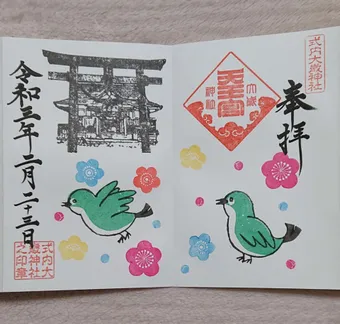 式内大歳神社
奉拝
大歳
天王宮
神社
令和三年二月二十三日
式内大
歳神社
之印章